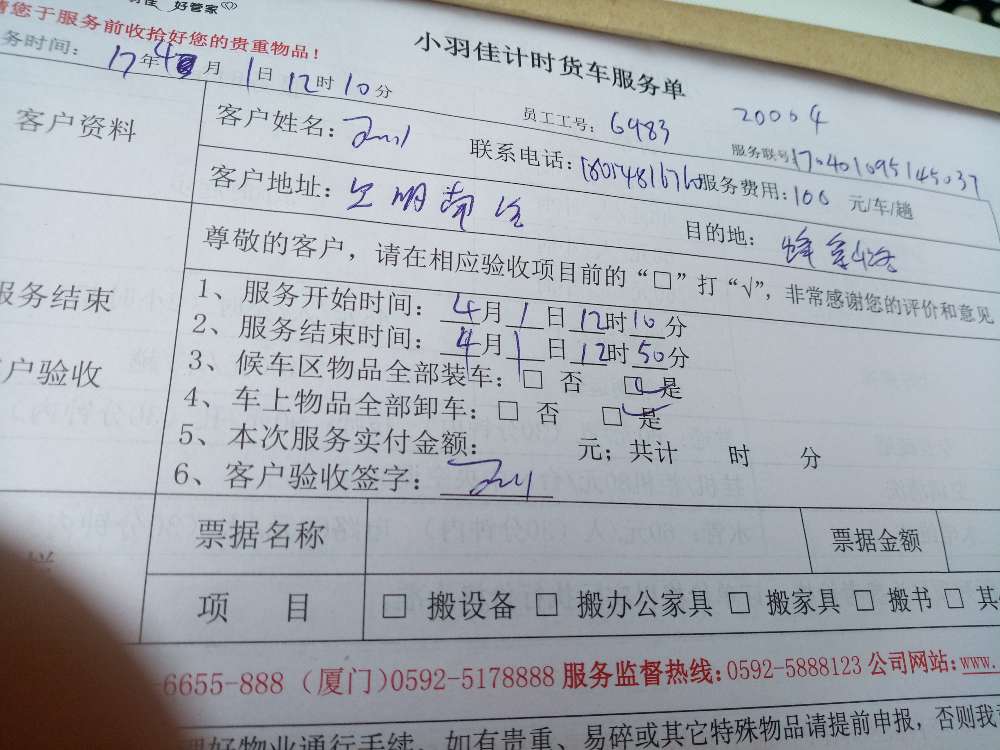 好管家
请您于服务前收拾好您的贵重物品！
小羽佳计时货车服务单
务时间：17年4月1日12时10分
员工工号：6483
20004
服务联号170401095145037
客户资料
客户姓名：
联系电话：
服务费用：100 元/车/趟
客户地址：
目的地：
尊敬的客户，请在相应验收项目前的“□”打“√”，非常感谢您的评价和意见
服务结束
户验收
1、服务开始时间：4月1日12时10分
2、服务结束时间：4月1日12时50分
3、候车区物品全部装车：□ 否 ☑ 是
4、车上物品全部卸车：□ 否 ☑ 是
5、本次服务实付金额： 元；共计 时 分
6、客户验收签字：
票据名称 票据金额
项 目 □ 搬设备 □ 搬办公家具 □ 搬家具 □ 搬书 □ 其
-6655-888（厦门)0592-5178888 服务监督热线:0592-5888123 公司网站:www.
理好物业通行手续。如有贵重、易碎或其它特殊物品请提前申报，否则我